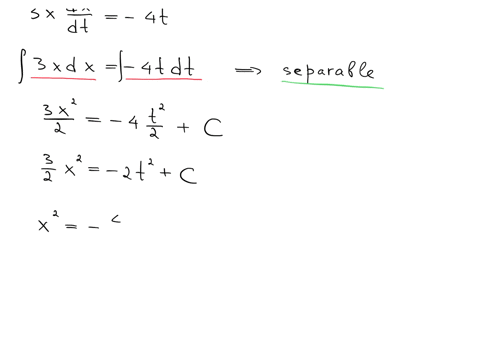 3x dx/dt = - 4t
∫ 3xdx = ∫ -4tdt ⟹ separable
3x²/2 = -4 t²/2 + C
3/2 x² = -2t² + C
x² = -